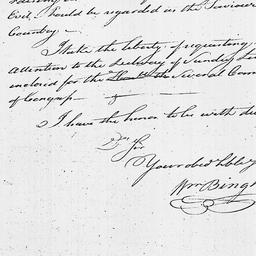 Evil, should be regarded as the Saviour
Country —
I take the liberty of requesting
Attention to the Delivery of Sundry Le
enclosed for the the Several Com
of Congress —
I have the honor to be with du
Sir
Your obed hble
Wm Bing